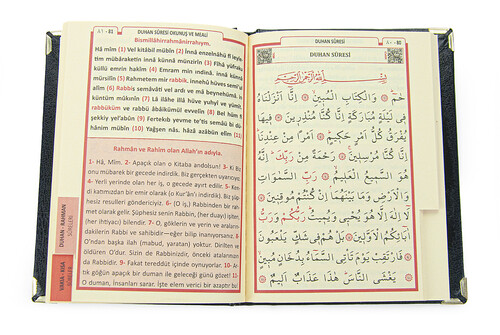 81 - ٨١
DUHAN SÛRESİ OKUNUŞ VE MEALİ
Bismillâhirrahmânirrahıym.
Hâ mîm (1) Vel kitâbil mübîn (2) İnnâ enzelnâhü fî leyle-
tim mübâraketin innâ künnâ münzirîn (3) Fîhâ yüfraku
küllü emrin hakîm (4) Emram min ındinâ, innâ künnâ
mürsilîn (5) Rahmetem mir rabbik, innehû hüves semî'ul
alîm (6) Rabbis semâvâti vel ardı ve mâ beynehümâ, in
küntüm mûkınîn (7) Lâ ilâhe illâ hüve yuhyî ve yümît,
rabbüküm ve rabbü âbâikümül evvelîn (8) Bel hüm fî
şekkiy yel'abûn (9) Fertekıb yevme te'tis semâü bi dü-
hânim mübîn (10) Yağşen nâs, hâzâ azâbün elîm (11)
Rahmân ve Rahîm olan Allah'ın adıyla.
1- Hâ, Mîm. 2- Apaçık olan o Kitaba andolsun! 3- Ki Biz
onu mübarek bir gecede indirdik. Biz gerçekten uyarıcıyız.
4- Yerli yerinde olan her iş, o gecede ayırt edilir. 5- Ken-
di katımızdan bir emir olarak (o Kur'ân'ı indirdik). Biz şüp-
hesiz resulleri göndericiyiz. 6- (O iş,) Rabbinden bir rah-
met olarak gelir. Şüphesiz senin Rabbin, (her duayı) işiten,
(her ihtiyacı) bilendir. 7- O, göklerin ve yerin ve araların-
dakilerin Rabbi ve sahibidir—eğer bilip inanıyorsanız. 8-
O'ndan başka ilah (mabud, yaratan) yoktur. Dirilten ve
öldüren O'dur. Sizin de Rabbinizdir, önceki atalarınızın
da Rabbidir. 9- Fakat tereddüt içinde oynuyorlar. 10- Ar-
tık göğün apaçık bir duman ile geleceği günü gözet! 11-
O duman, insanları sarar. İşte elem verici bir azaptır bu!
DUHAN - RAHMAN
SÛRELERİ
DUHAN SÛRESİ
٨٠ - 80
DUHAN SÛRESİ
بِسْمِ اللّٰهِ الرَّحْمٰنِ الرَّحِيمِ
حٰمٓ ۝ وَالْكِتَابِ الْمُبِينِ ۝ اِنَّٓا اَنْزَلْنَاهُ
فِي لَيْلَةٍ مُبَارَكَةٍ اِنَّا كُنَّا مُنْذِرِينَ ۝ فِيهَا
يُفْرَقُ كُلُّ اَمْرٍ حَكِيمٍ ۝ اَمْرًا مِنْ عِنْدِنَا
اِنَّا كُنَّا مُرْسِلِينَ ۝ رَحْمَةً مِنْ رَبِّكَ اِنَّهُ
هُوَ السَّمِيعُ الْعَلِيمُ ۝ رَبِّ السَّمٰوَاتِ
وَالْاَرْضِ وَمَا بَيْنَهُمَا اِنْ كُنْتُمْ مُوقِنِينَ ۝
لَٓا اِلٰهَ اِلَّا هُوَ يُحْيِي وَيُمِيتُ رَبُّكُمْ وَرَبُّ
اٰبَٓائِكُمُ الْاَوَّلِينَ ۝ بَلْ هُمْ فِي شَكٍّ يَلْعَبُونَ
۝ فَارْتَقِبْ يَوْمَ تَأْتِي السَّمَٓاءُ بِدُخَانٍ مُبِينٍ
۝ يَغْشَى النَّاسَ هٰذَا عَذَابٌ اَلِيمٌ ۝